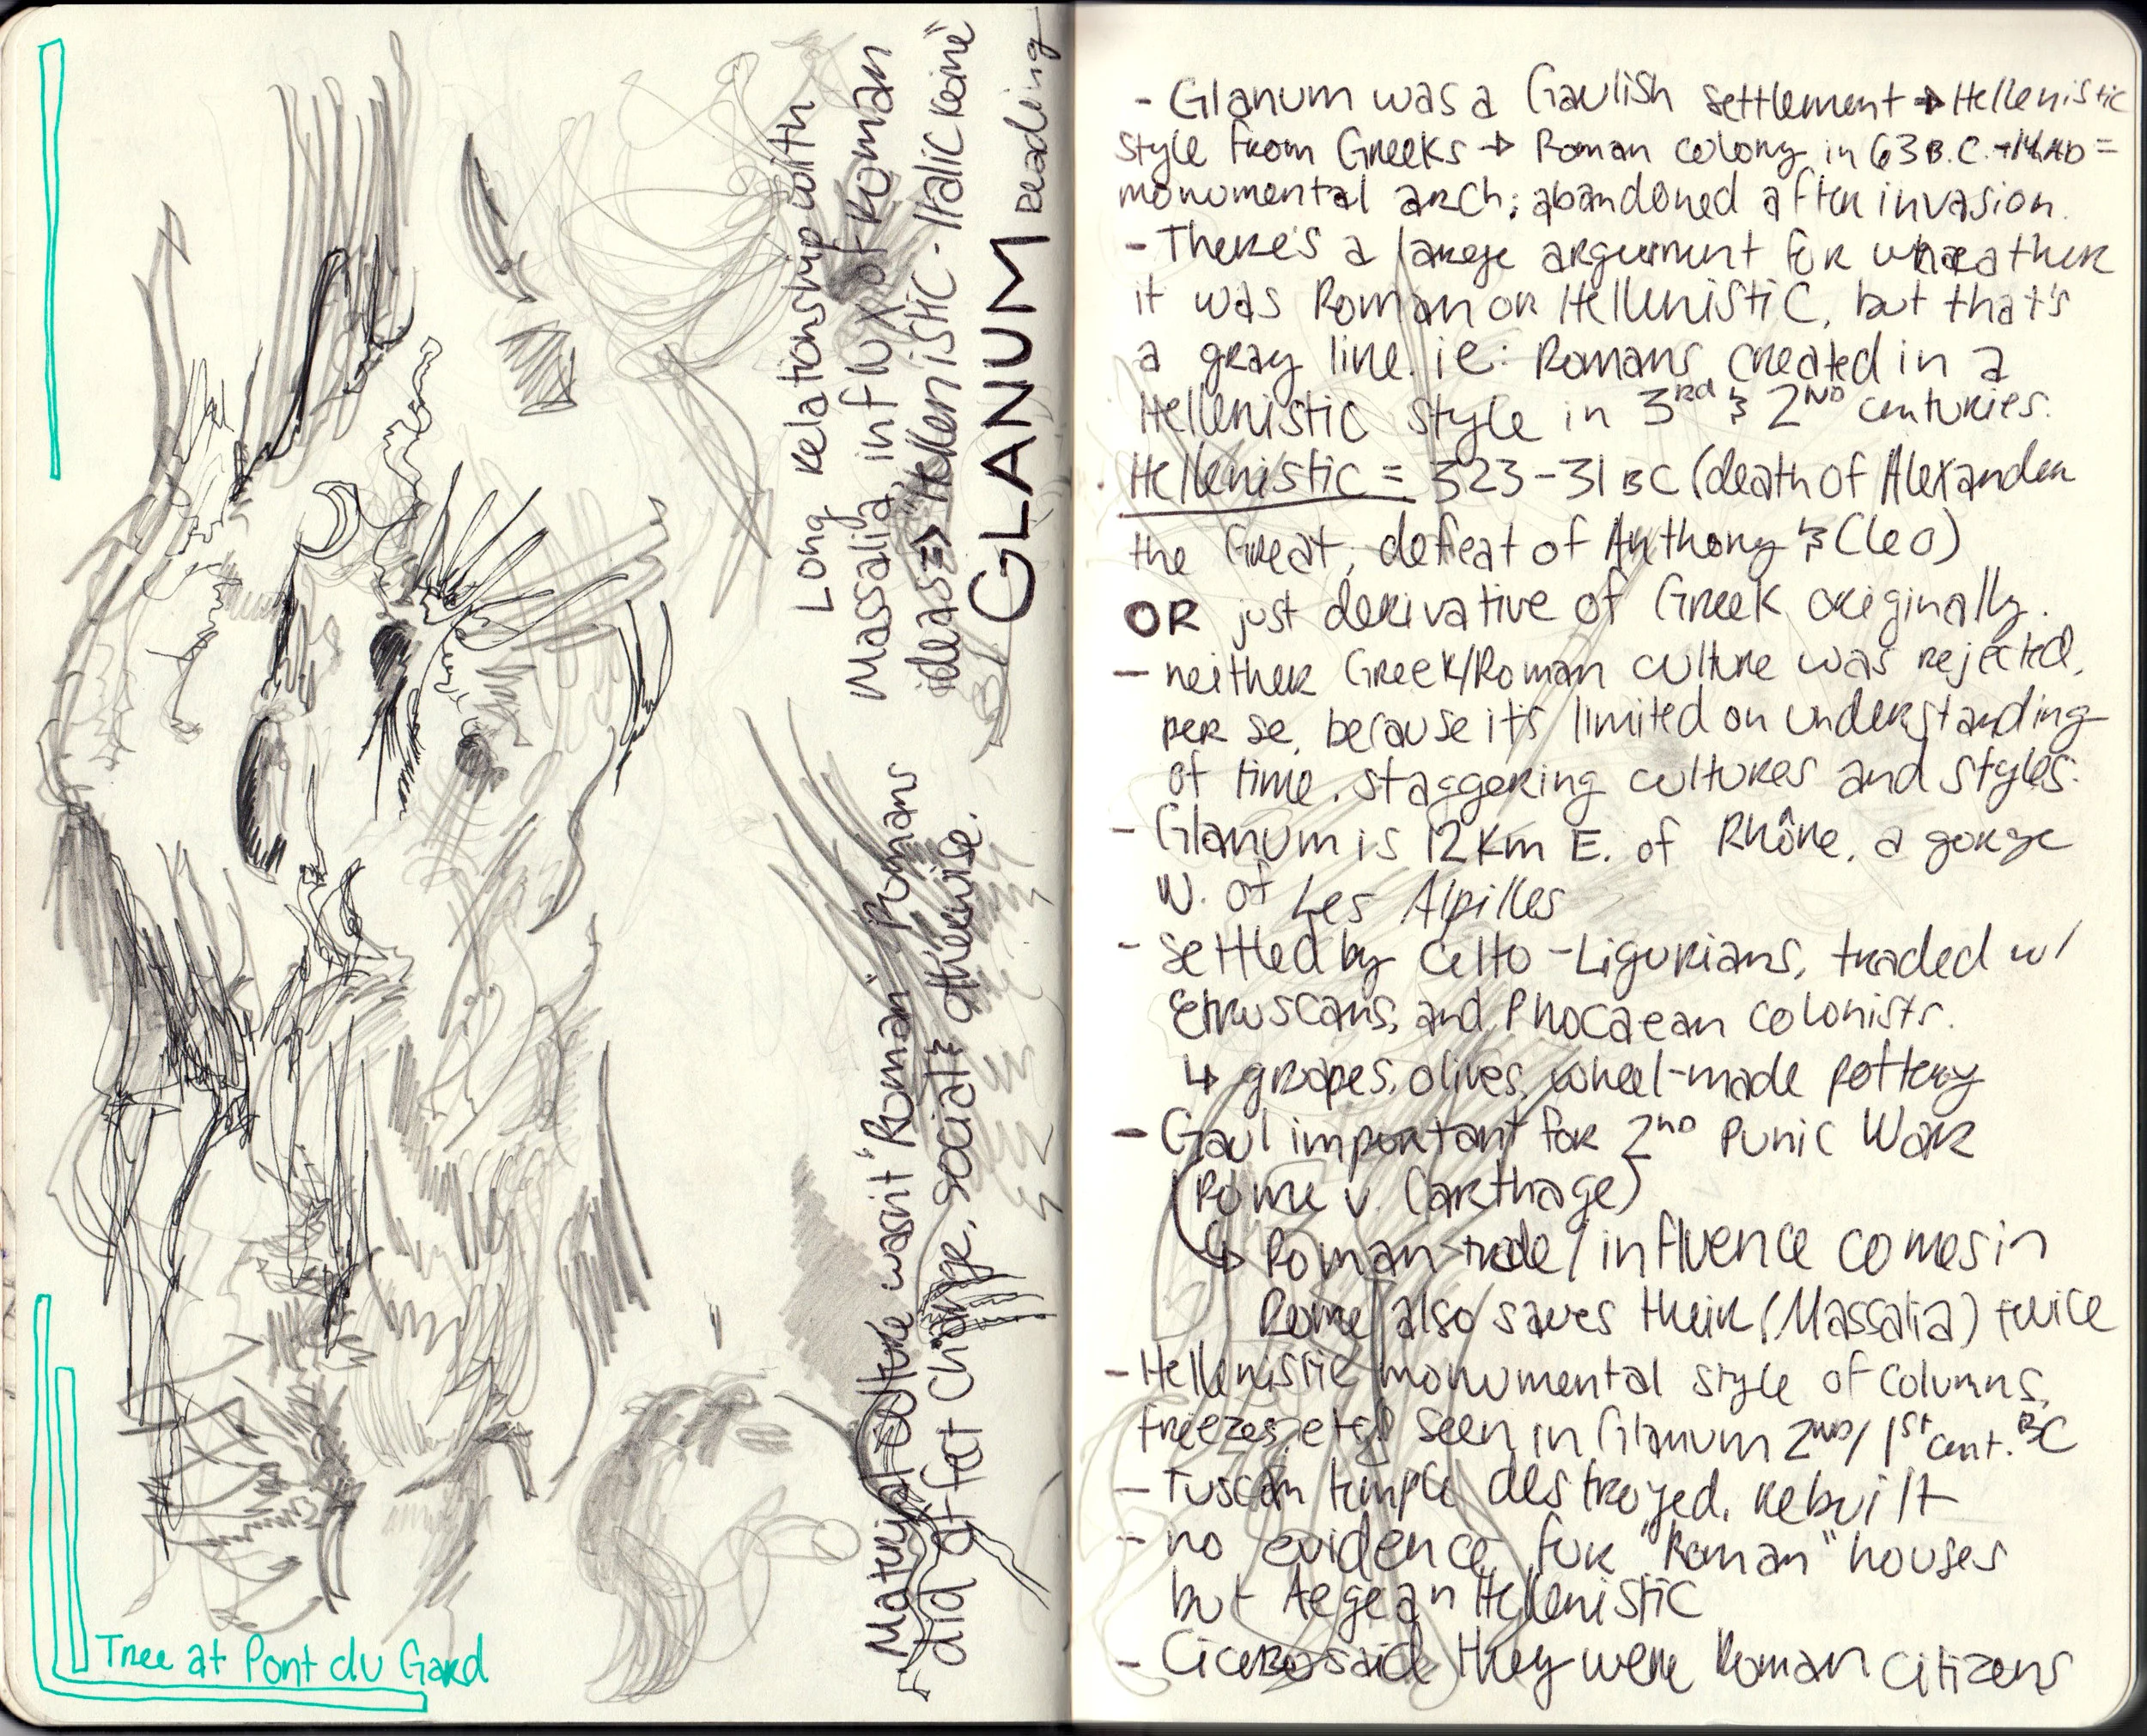 Tree at Pont du Gard
GLANUM Reading
Long relationship with
Massalia, influx of Roman
ideas => "Hellenistic-Italic Koine"
Material culture wasn't "Roman" Romans
did affect change, social & otherwise.
- Glanum was a Gaulish settlement → Hellenistic
style from Greeks → Roman colony in 63 B.C. → 14 AD =
monumental arch; abandoned after invasion.
- There's a large argument for wheather
it was Roman or Hellenistic, but that's
a gray line. ie: Romans created in a
Hellenistic style in 3rd & 2nd centuries.
. Hellenistic = 323-31 BC (death of Alexander
the Great, defeat of Anthony & Cleo)
OR just derivative of Greek originally.
- neither Greek/Roman culture was rejected,
per se, because it's limited on understanding
of time, staggering cultures and styles.
- Glanum is 12 km E. of Rhône, a gorge
W. of Les Alpilles
- settled by Celto-Ligurians, traded w/
Etruscans, and Phocaean colonists.
↳ grapes, olives, wheel-made pottery
- Gaul important for 2nd Punic War
(Rome v. Carthage)
↳ Roman trade/influence comes in
Rome also saves their (Massalia) twice
- Hellenistic monumental style of columns,
friezes, etc, seen in Glanum 2nd/1st cent. BC
- Tuscan temple destroyed, rebuilt
- no evidence for "Roman" houses
but Aegean Hellenistic
- Cicero said they were Roman citizens